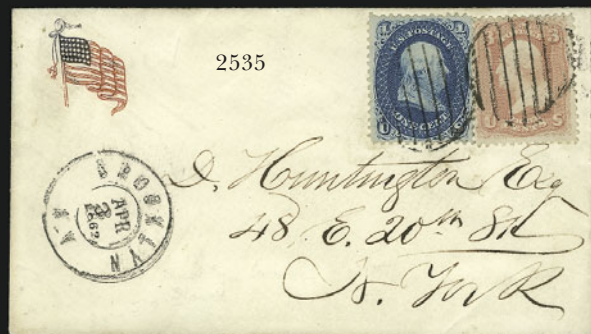 2535
U.S. POSTAGE
ONE CENT
BROOKLYN N.Y.
APR
2
1862
D. Huntington Esq
48 E. 20th St
N. York